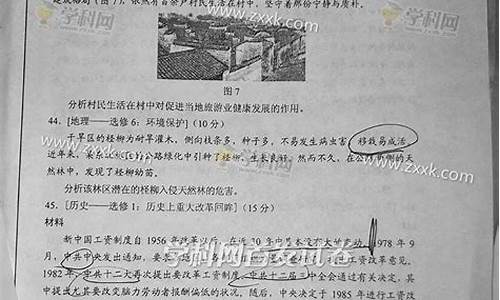 走成格局（图7），依然有百余户村民生活在村中，坚守着那份宁静与质朴。
图7
分析村民生活在村中对促进当地旅游业健康发展的作用。
44. [地理——选修6：环境保护]（10分）
干旱区的柽柳为耐旱灌木，侧向枝条多，种子多，不易发生病虫害，移栽易成活。
近年来，某林区公路绿化中引种了柽柳，生长良好。然而不久，在公路两侧的天
然林中，发现了柽柳幼苗。
分析该林区潜在的柽柳入侵天然林的危害。
45. [历史——选修1：历史上重大改革回眸]（15分）
材料
新中国工资制度自1956年改革以后，在近30年中基本没有大的变动。1978年9
月，中共中央发出通知，要求 工资改革意见。
1982年，中共十二大再次提出要改革工资制度。中共十二届三中全会通过有关决定，其
中提出尤其要改变脑力劳动者报酬偏低的状况。随后，中央决定于1985年进行工资改
学科网
www.zxxk.com
学科网
www.zxxk.com
www.zxxk.com
www.zxxk.com
学科网首发试卷
www.zxxk.com